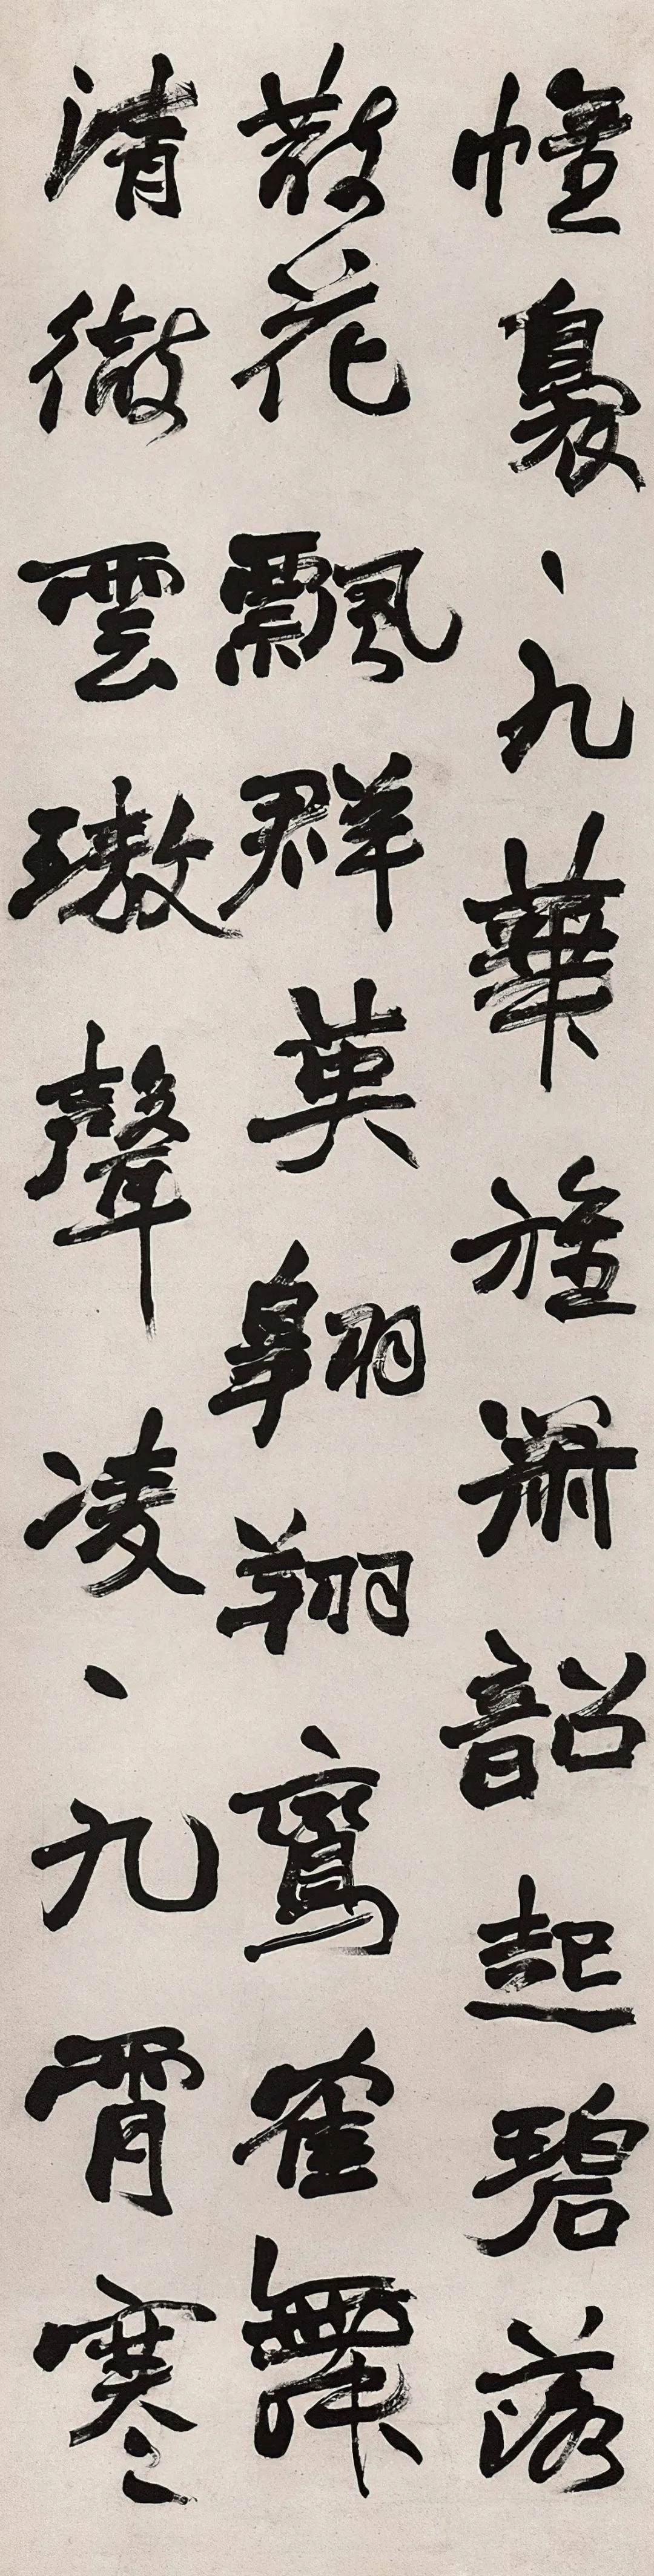 幢裊、九華旌簫韶起碧落
散花飄群英翱翔鸞隺舞
清徹雲璈聲凌、九霄寒